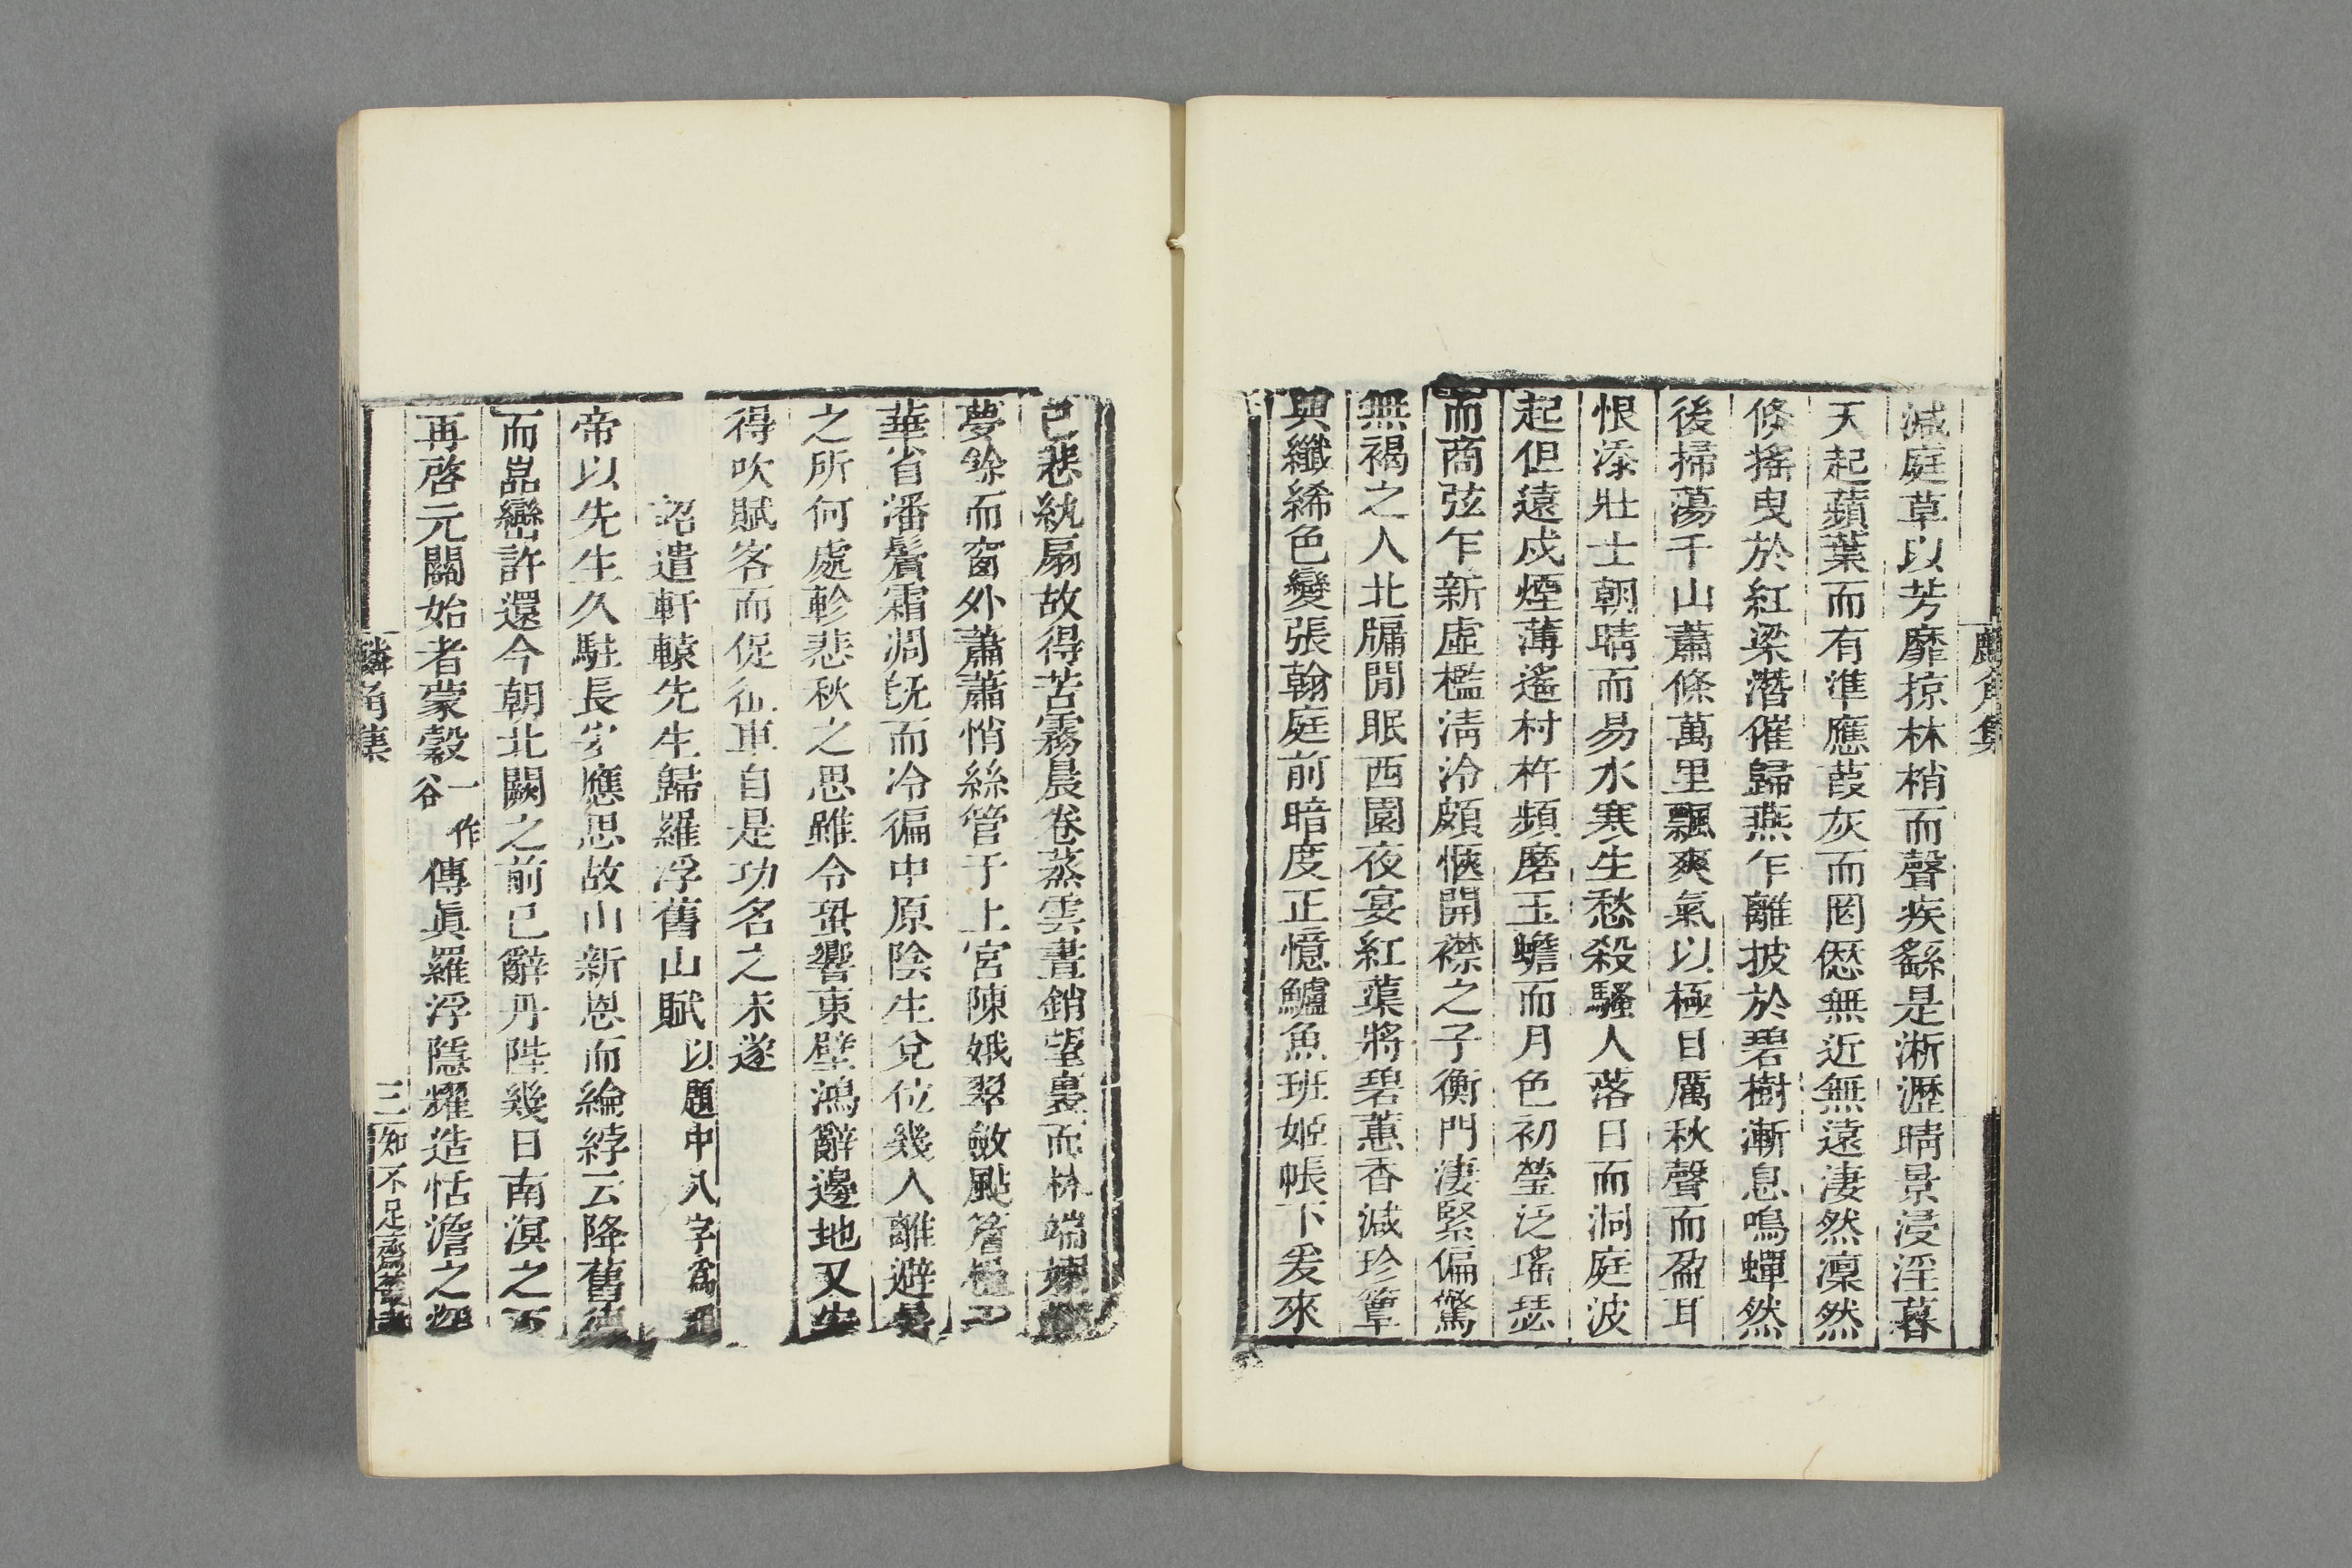 麟角集
減庭草以芳靡掠林梢而聲疾繇是淅瀝晴景浸淫暮
天起蘋葉而有準應葭灰而罔愆無近無遠淒然凜然
倐搖曳於紅梁潛催歸燕乍離披於碧樹漸息鳴蟬然
後掃蕩千山蕭條萬里飄爽氣以極目厲秋聲而盈耳
恨添壯士朝晴而易水寒生愁殺騷人落日而洞庭波
起但遠戍煙薄遙村杵頻磨玉蟾而月色初瑩泛瑤瑟
而商弦乍新虛檻淸泠頗愜開襟之子衡門淒緊偏驚
無褐之人北牖閒眠西園夜宴紅蕖將碧蕙香減珍簟
與纖絺色變張翰庭前暗度正憶鱸魚班姬帳下爰來
已悲紈扇故得苦霧晨卷蒸雲晝銷望裏而林端嫋嫋
夢餘而窗外蕭蕭悄絲管于上宮陳娥翠斂颭簷楹于
華省潘鬢霜凋旣而冷徧中原陰生兌位幾人離避暑
之所何處軫悲秋之思雖令蛩響東壁鴻辭邊地又安
得吹賦客而促征車自是功名之未遂
詔遣軒轅先生歸羅浮舊山賦以題中八字爲
帝以先生久駐長安應思故山新恩而綸綍云降舊
而嵓巒許還今朝北闕之前已辭丹陛幾日南溟之
再啓元關始者蒙轂一作谷傳眞羅浮隱耀造恬澹之
麟角集
三
知不足齋叢書